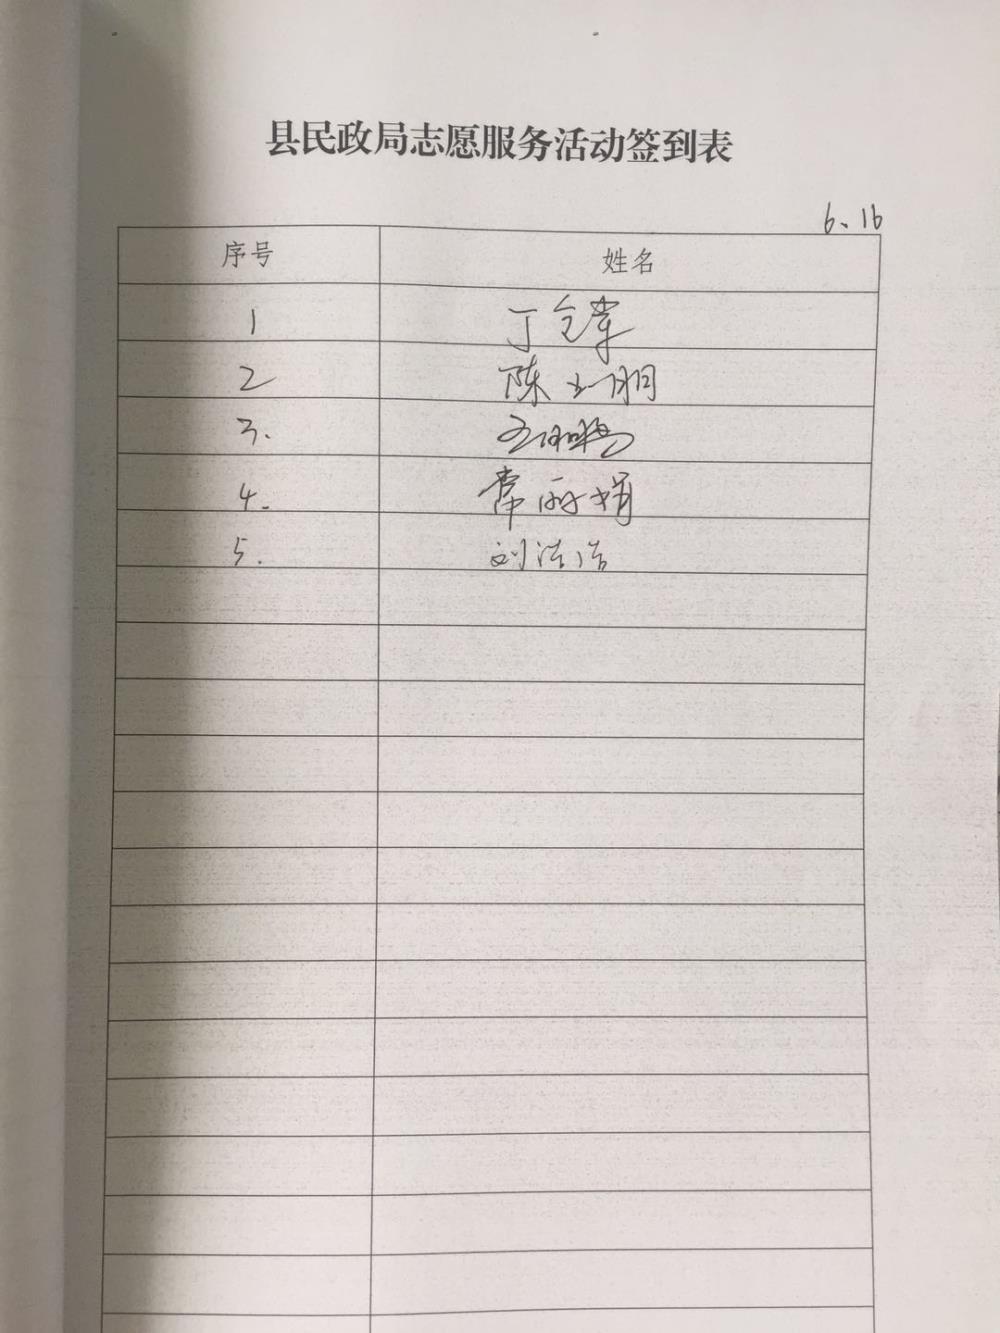 县民政局志愿服务活动签到表
6.16
序号 姓名
1 丁
2 陈 明
3. 王
4. 常丽娟
5. 刘洁洁